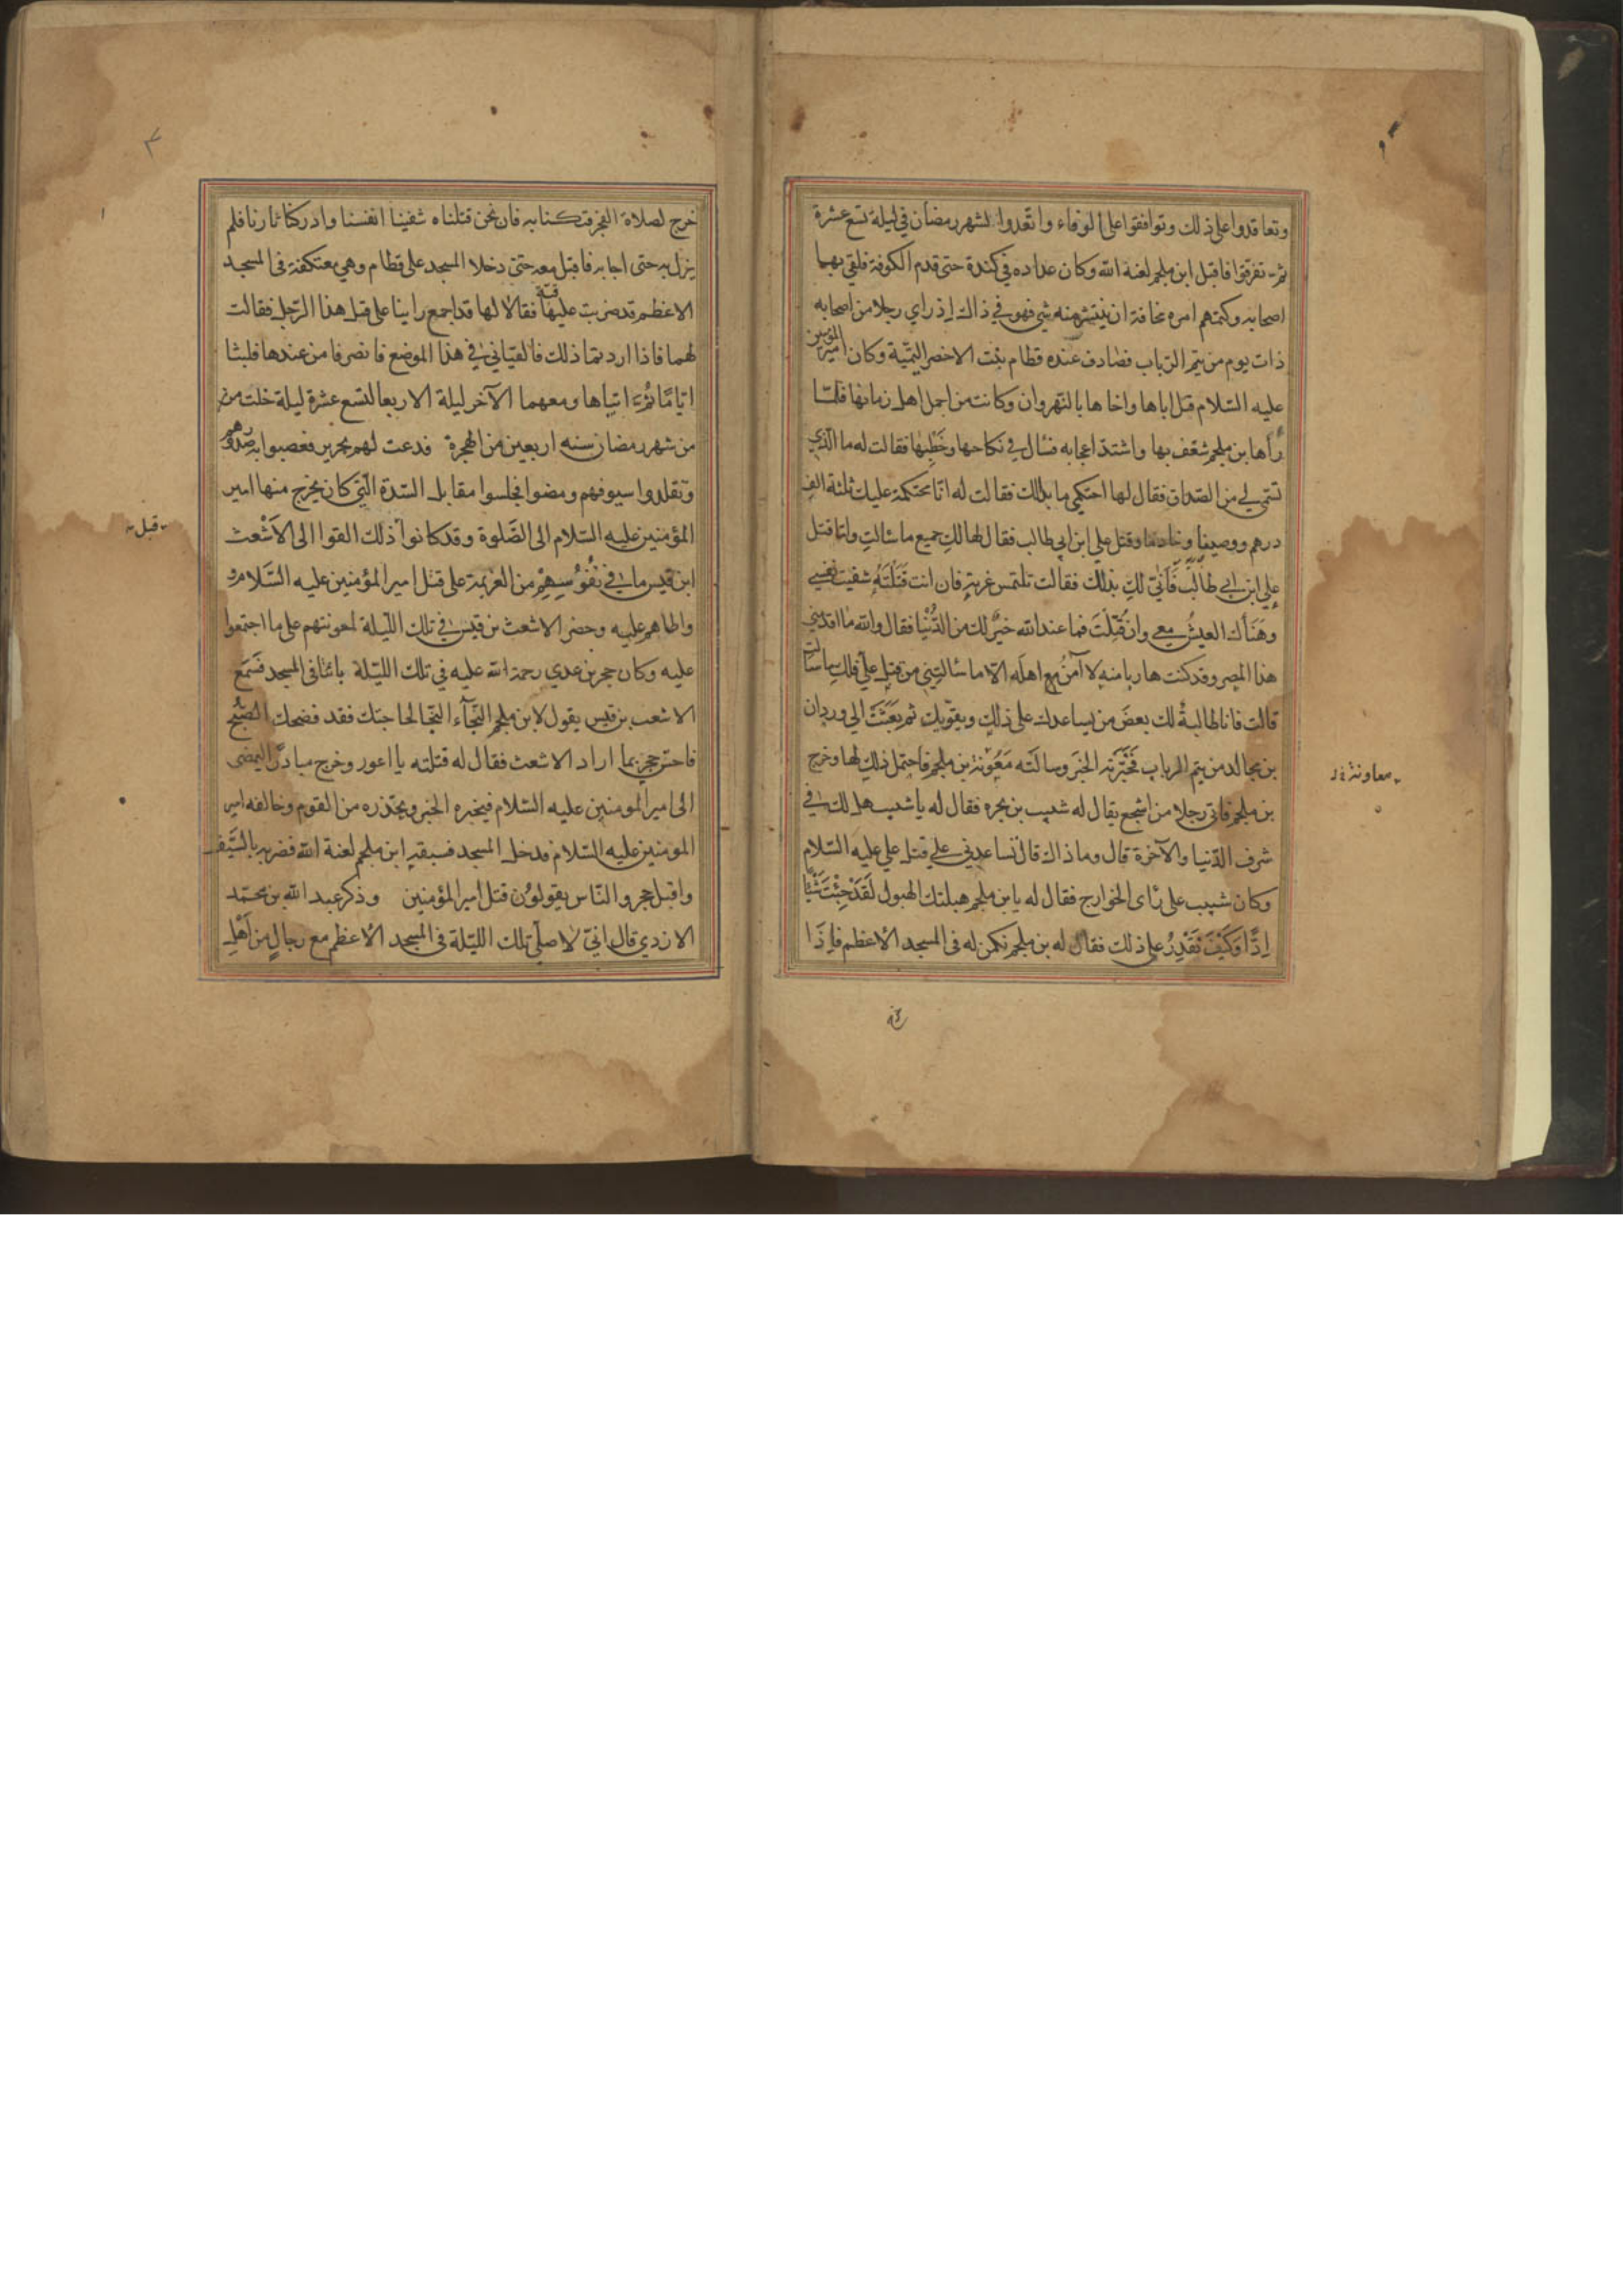 وتعاقدوا على ذلك وتوافقوا على الوفاء واتعدوا لشهر رمضان في ليلة تسع عشرة
ثم تفرقوا فاقبل ابن ملجم لعنة الله وكان عداده في كندة حتى قدم الكوفة فلقي بها
اصحابه وكتمهم امره مخافة ان ينتشر منه شي فهو في ذاك اذ راي رجلا من اصحابه
ذات يوم من تيم الرباب فصادف عنده قطام بنت الاخضر التيمية وكان امير المؤمنين
عليه السلام قتل اباها واخاها بالنهروان وكانت من اجمل اهل زمانها فلما
رأها بن ملجم شغف بها واشتد اعجابه فسال في نكاحها وخطبها فقالت له ما الذي
تسمي لي من الصداق فقال لها احتكمي ما بدالك فقالت له انا محتكمة عليك ثلثة الف
درهم ووصيفا وخادما وقتل علي ابن ابي طالب فقال لها لكِ جميع ما سالتِ واما قتل
علي ابن ابي طالب فَأنّي لكِ بذلك فقالت تلتمس غرته فان انت قَتَلتَهُ شفيت نفسي
وهَنَأك العيشُ معي وان قُتِلتَ فما عند الله خيرٌ لك من الدُّنيا فقال والله ما اقدمني
هذا المصر وقد كنت هاربا منه لا آمنُ مع اهله الا ما سالتيني من قتل علي فلكِ ما سالت
قالت فانا طالبةٌ لك بعضَ من يساعدك على ذلك ويقويك ثم بَعَثَتْ الى وردان
بن مجالد من تيم الرباب فَخَبَّرَته الخبَر وسالَته مَعُونة بن ملجم فاحتمل ذلك لها وخرج
معاونة خ ل
بن ملجم فاتى رجلا من اشجع يقال له شبيب بن بجره فقال له يا شبيب هل لك في
شرف الدنيا والآخرة قال وما ذاك قال تساعدني على قتل علي عليه السلام
وكان شبيب على رأى الخوارج فقال له يا بن ملجم هبلتك الهبول لَقَدْ جِئْتَ شَيْئًا
اِدًّا وَكَيْفَ تَقْدِرُ على ذلك فقال له بن ملجم نكمن له فى المسجد الاعظم فاِذَا
خرج لصلاة الفجر فتكنا به فان نحن قتلناه شفينا انفسنا وادركنا ثارنا فلم
يزل به حتى اجابه فاقبل معه حتى دخلا المسجد على قطام وهي معتكفة فى المسجد
الاعظم قد ضربت عليها قبة فقالا لها قد اجمع راينا على قتل هذا الرجل فقالت
لهما فاذا اردتما ذلك فالقياني في هذا الموضع فانصرفا من عندها فلبثا
اياما ثُمَّ اتياها ومعهما الآخر ليلة الاربعا لتسع عشرة ليلة خلت من
من شهر رمضان سنه اربعين من الهجرة فدعت لهم بحرير فعصبوا به صدورهم
وتقلدوا سيوفهم ومضوا فجلسوا مقابل السّدة التّي كان يخرج منها امير
المؤمنين عليه السلام الى الصَّلوة وقد كانوا ذلك القوا الى الاَشعث
قبل
ابن قيس ما في نُفُوسِهِمْ من العزيمة على قتل امير المؤمنين عليه السَّلام و
واطاهم عليه وحضر الاشعث بن قيس في تلك الليلة لمعونتهم على ما اجتمعوا
عليه وكان حجر بن عدي رحمة الله عليه في تلك الليلة بائتا فى المسجد فسَمَع
الاشعب بن قيس يقول لابن ملجم النّجآء النّجا لحاجتك فقد فضحك الصُّبْح
فاحسّ حجر بما اراد الاشعث فقال له قتلته يا اعور وخرج مبادرًا ليمضى
الى امير المومنين عليه السّلام فيخبره الخبر ويحذره من القوم وخالفه امير
المومنين عليه السّلام فدخل المسجد فسبقه ابن ملجم لعنة الله فضربه بالسَّيف
واقبل حجر والنّاس يقولوُن قتل امير المؤمنين وذكر عبد الله بن محمّد
الازدي قال انيّ لاصلّي تلك الليّلة فى المسجد الاعظم مع رجالٍ من اَهْلِ